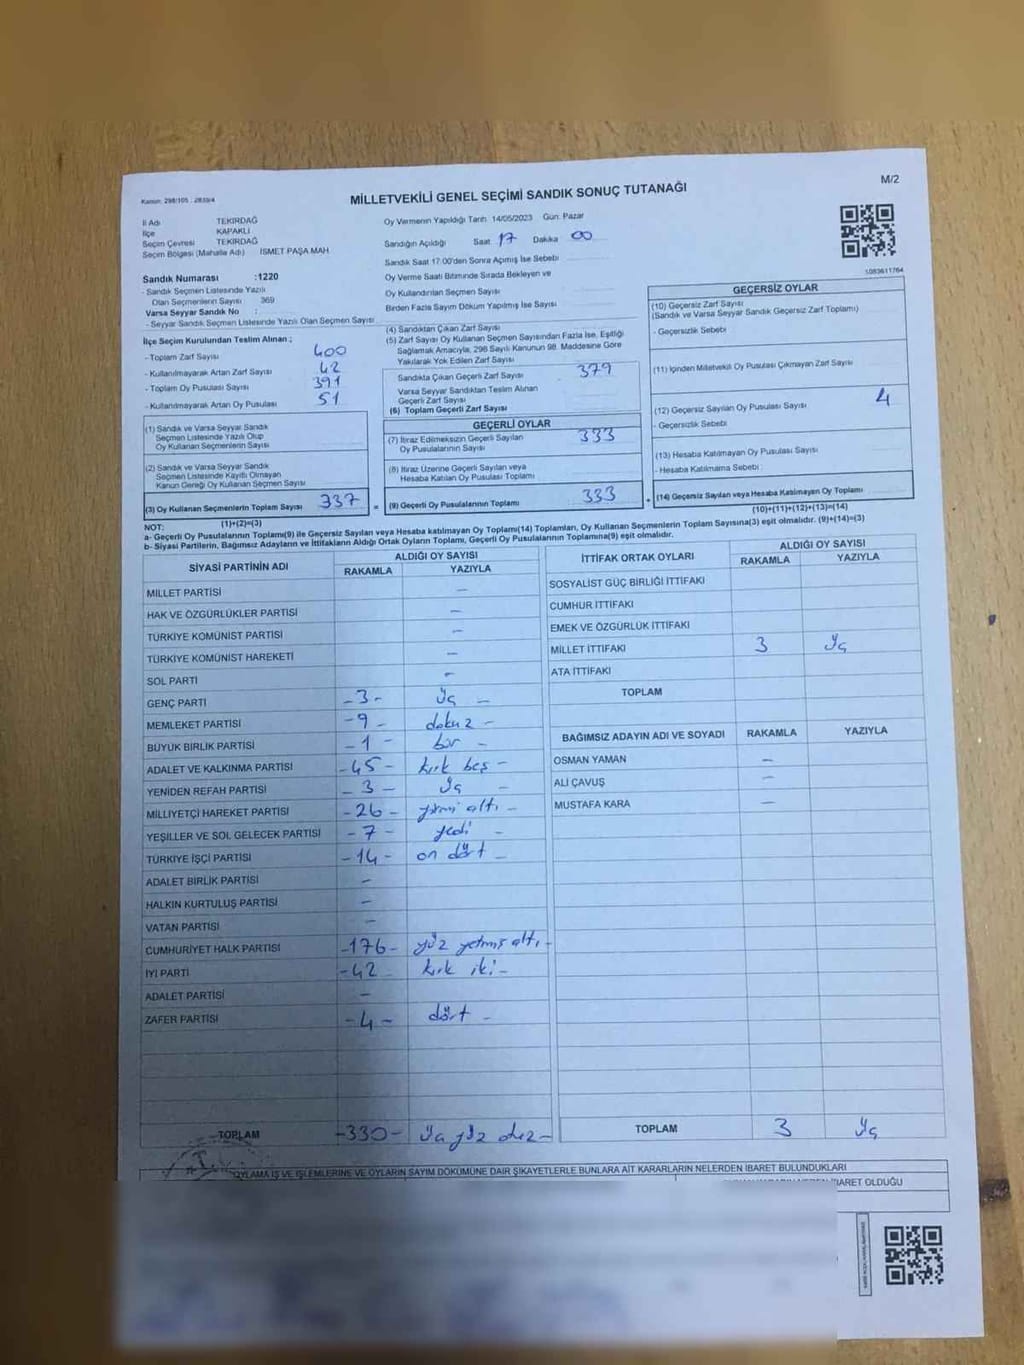 M/2
Kanun: 298/105 : 2839/4
MİLLETVEKİLİ GENEL SEÇİMİ SANDIK SONUÇ TUTANAĞI
İl Adı TEKİRDAĞ
İlçe KAPAKLI
Seçim Çevresi TEKİRDAĞ
Seçim Bölgesi (Mahalle Adı) İSMET PAŞA MAH
Sandık Numarası :1220
- Sandık Seçmen Listesinde Yazılı
Olan Seçmenlerin Sayısı 369
Varsa Seyyar Sandık No :
- Seyyar Sandık Seçmen Listesinde Yazılı Olan Seçmen Sayısı
İlçe Seçim Kurulundan Teslim Alınan ;
- Toplam Zarf Sayısı 400
- Kullanılmayarak Artan Zarf Sayısı 42
- Toplam Oy Pusulası Sayısı 391
- Kullanılmayarak Artan Oy Pusulası 51
(1) Sandık ve Varsa Seyyar Sandık
Seçmen Listesinde Yazılı Olup
Oy Kullanan Seçmenlerin Sayısı
(2) Sandık ve Varsa Seyyar Sandık
Seçmen Listesinde Kayıtlı Olmayan
Kanun Gereği Oy Kullanan Seçmen Sayısı
(3) Oy Kullanan Seçmenlerin Toplam Sayısı 337
(1)+(2)=(3)
Oy Vermenin Yapıldığı Tarih 14/05/2023 Gün: Pazar
Sandığın Açıldığı Saat 17 Dakika 00
Sandık Saat 17:00'den Sonra Açımış İse Sebebi
Oy Verme Saati Bitiminde Sırada Bekleyen ve
Oy Kullandırılan Seçmen Sayısı
Birden Fazla Sayım Döküm Yapılmış İse Sayısı
(4) Sandıktan Çıkan Zarf Sayısı
(5) Zarf Sayısı Oy Kullanan Seçmen Sayısından Fazla İse, Eşitliği
Sağlamak Amacıyla, 298 Sayılı Kanunun 98. Maddesine Göre
Yakılarak Yok Edilen Zarf Sayısı
Sandıkta Çıkan Geçerli Zarf Sayısı 379
Varsa Seyyar Sandıktan Teslim Alınan
Geçerli Zarf Sayısı
(6) Toplam Geçerli Zarf Sayısı
GEÇERLİ OYLAR
(7) İtiraz Edilmeksizin Geçerli Sayılan
Oy Pusulalarının Toplamı 333
(8) İtiraz Üzerine Geçerli Sayılan veya
Hesaba Katılan Oy Pusulası Toplamı
= (9) Geçerli Oy Pusulalarının Toplamı 333
1083611764
GEÇERSİZ OYLAR
(10) Geçersiz Zarf Sayısı
(Sandık ve Varsa Seyyar Sandık Geçersiz Zarf Toplamı)
- Geçersizlik Sebebi
(11) İçinden Milletvekili Oy Pusulası Çıkmayan Zarf Sayısı
(12) Geçersiz Sayılan Oy Pusulası Sayısı 4
- Geçersizlik Sebebi:
(13) Hesaba Katılmayan Oy Pusulası Sayısı
- Hesaba Katılmama Sebebi :
+ (14) Geçersiz Sayılan veya Hesaba Katılmayan Oy Toplamı
(10)+(11)+(12)+(13)=(14)
NOT:
a- Geçerli Oy Pusulaları Toplamı(9) ile Geçersiz Sayılan veya Hesaba Katılmayan Oy Toplamı(14) Toplamları, Oy Kullanan Seçmenlerin Toplam Sayısına(3) eşit olmalıdır. (9)+(14)=(3)
b- Siyasi Partilerin, Bağımsız Adayların ve İttifakların Aldığı Ortak Oyların Toplamı, Geçerli Oy Pusulalarının Toplamına(9) eşit olmalıdır.
SİYASİ PARTİNİN ADI ALDIĞI OY SAYISI
RAKAMLA YAZIYLA
MİLLET PARTİSİ –
HAK VE ÖZGÜRLÜKLER PARTİSİ –
TÜRKİYE KOMÜNİST PARTİSİ –
TÜRKİYE KOMÜNİST HAREKETİ –
SOL PARTİ –
GENÇ PARTİ -3- üç –
MEMLEKET PARTİSİ -9- dokuz –
BÜYÜK BİRLİK PARTİSİ -1- bir –
ADALET VE KALKINMA PARTİSİ -45- kırk beş –
YENİDEN REFAH PARTİSİ -3- üç –
MİLLİYETÇİ HAREKET PARTİSİ -26- yirmi altı –
YEŞİLLER VE SOL GELECEK PARTİSİ -7- yedi –
TÜRKİYE İŞÇİ PARTİSİ -14- on dört –
ADALET BİRLİK PARTİSİ –
HALKIN KURTULUŞ PARTİSİ –
VATAN PARTİSİ –
CUMHURİYET HALK PARTİSİ -176- yüz yetmiş altı –
İYİ PARTİ -42 kırk iki –
ADALET PARTİSİ –
ZAFER PARTİSİ -4- dört –
TOPLAM -330- üç yüz otuz –
İTTİFAK ORTAK OYLARI ALDIĞI OY SAYISI
RAKAMLA YAZIYLA
SOSYALİST GÜÇ BİRLİĞİ İTTİFAKI
CUMHUR İTTİFAKI
EMEK VE ÖZGÜRLÜK İTTİFAKI
MİLLET İTTİFAKI 3 üç
ATA İTTİFAKI
TOPLAM
BAĞIMSIZ ADAYIN ADI VE SOYADI RAKAMLA YAZIYLA
OSMAN YAMAN –
ALİ ÇAVUŞ –
MUSTAFA KARA –
TOPLAM 3 üç
OYLAMA İŞ VE İŞLEMLERİNE VE OYLARIN SAYIM DÖKÜMÜNE DAİR ŞİKAYETLERLE BUNLARA AİT KARARLARIN NELERDEN İBARET BULUNDUKLARI
İBARET OLDUĞU